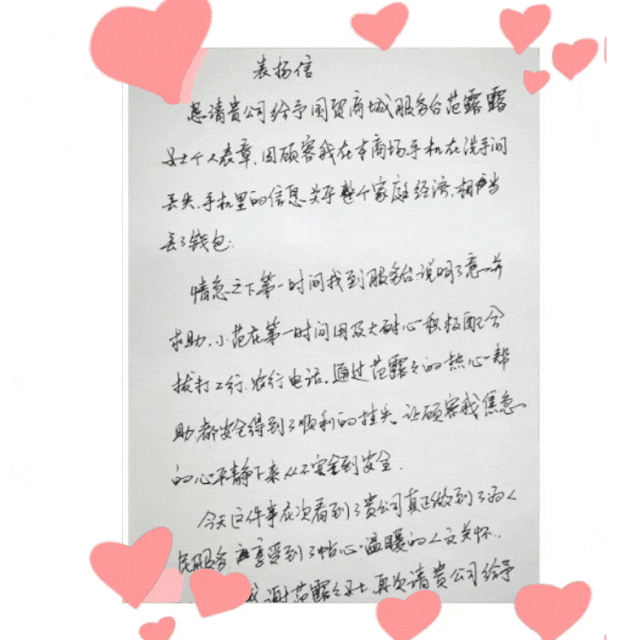 表扬信
恳请贵公司给予国贸商城服务台范露露
女士个人表章.因顾客我在本商场手机在洗手间
丢失.手机里的信息关乎整个家庭经济.相当
丢了钱包.
情急之下第一时间找到服务台说明了意并
求助.小范在第一时间用及大耐心积极配合
拨打工行.农行电话.通过范露之的热心帮
助都安全得到了顺利的挂失.让顾客我焦急
的心平静下来从不安全到安全.
今天这件事在次看到了贵公司真正做到了为人
民服务 享受到了帖心.温暖的人文关怀.
谢范露之女士 再次请贵公司给予